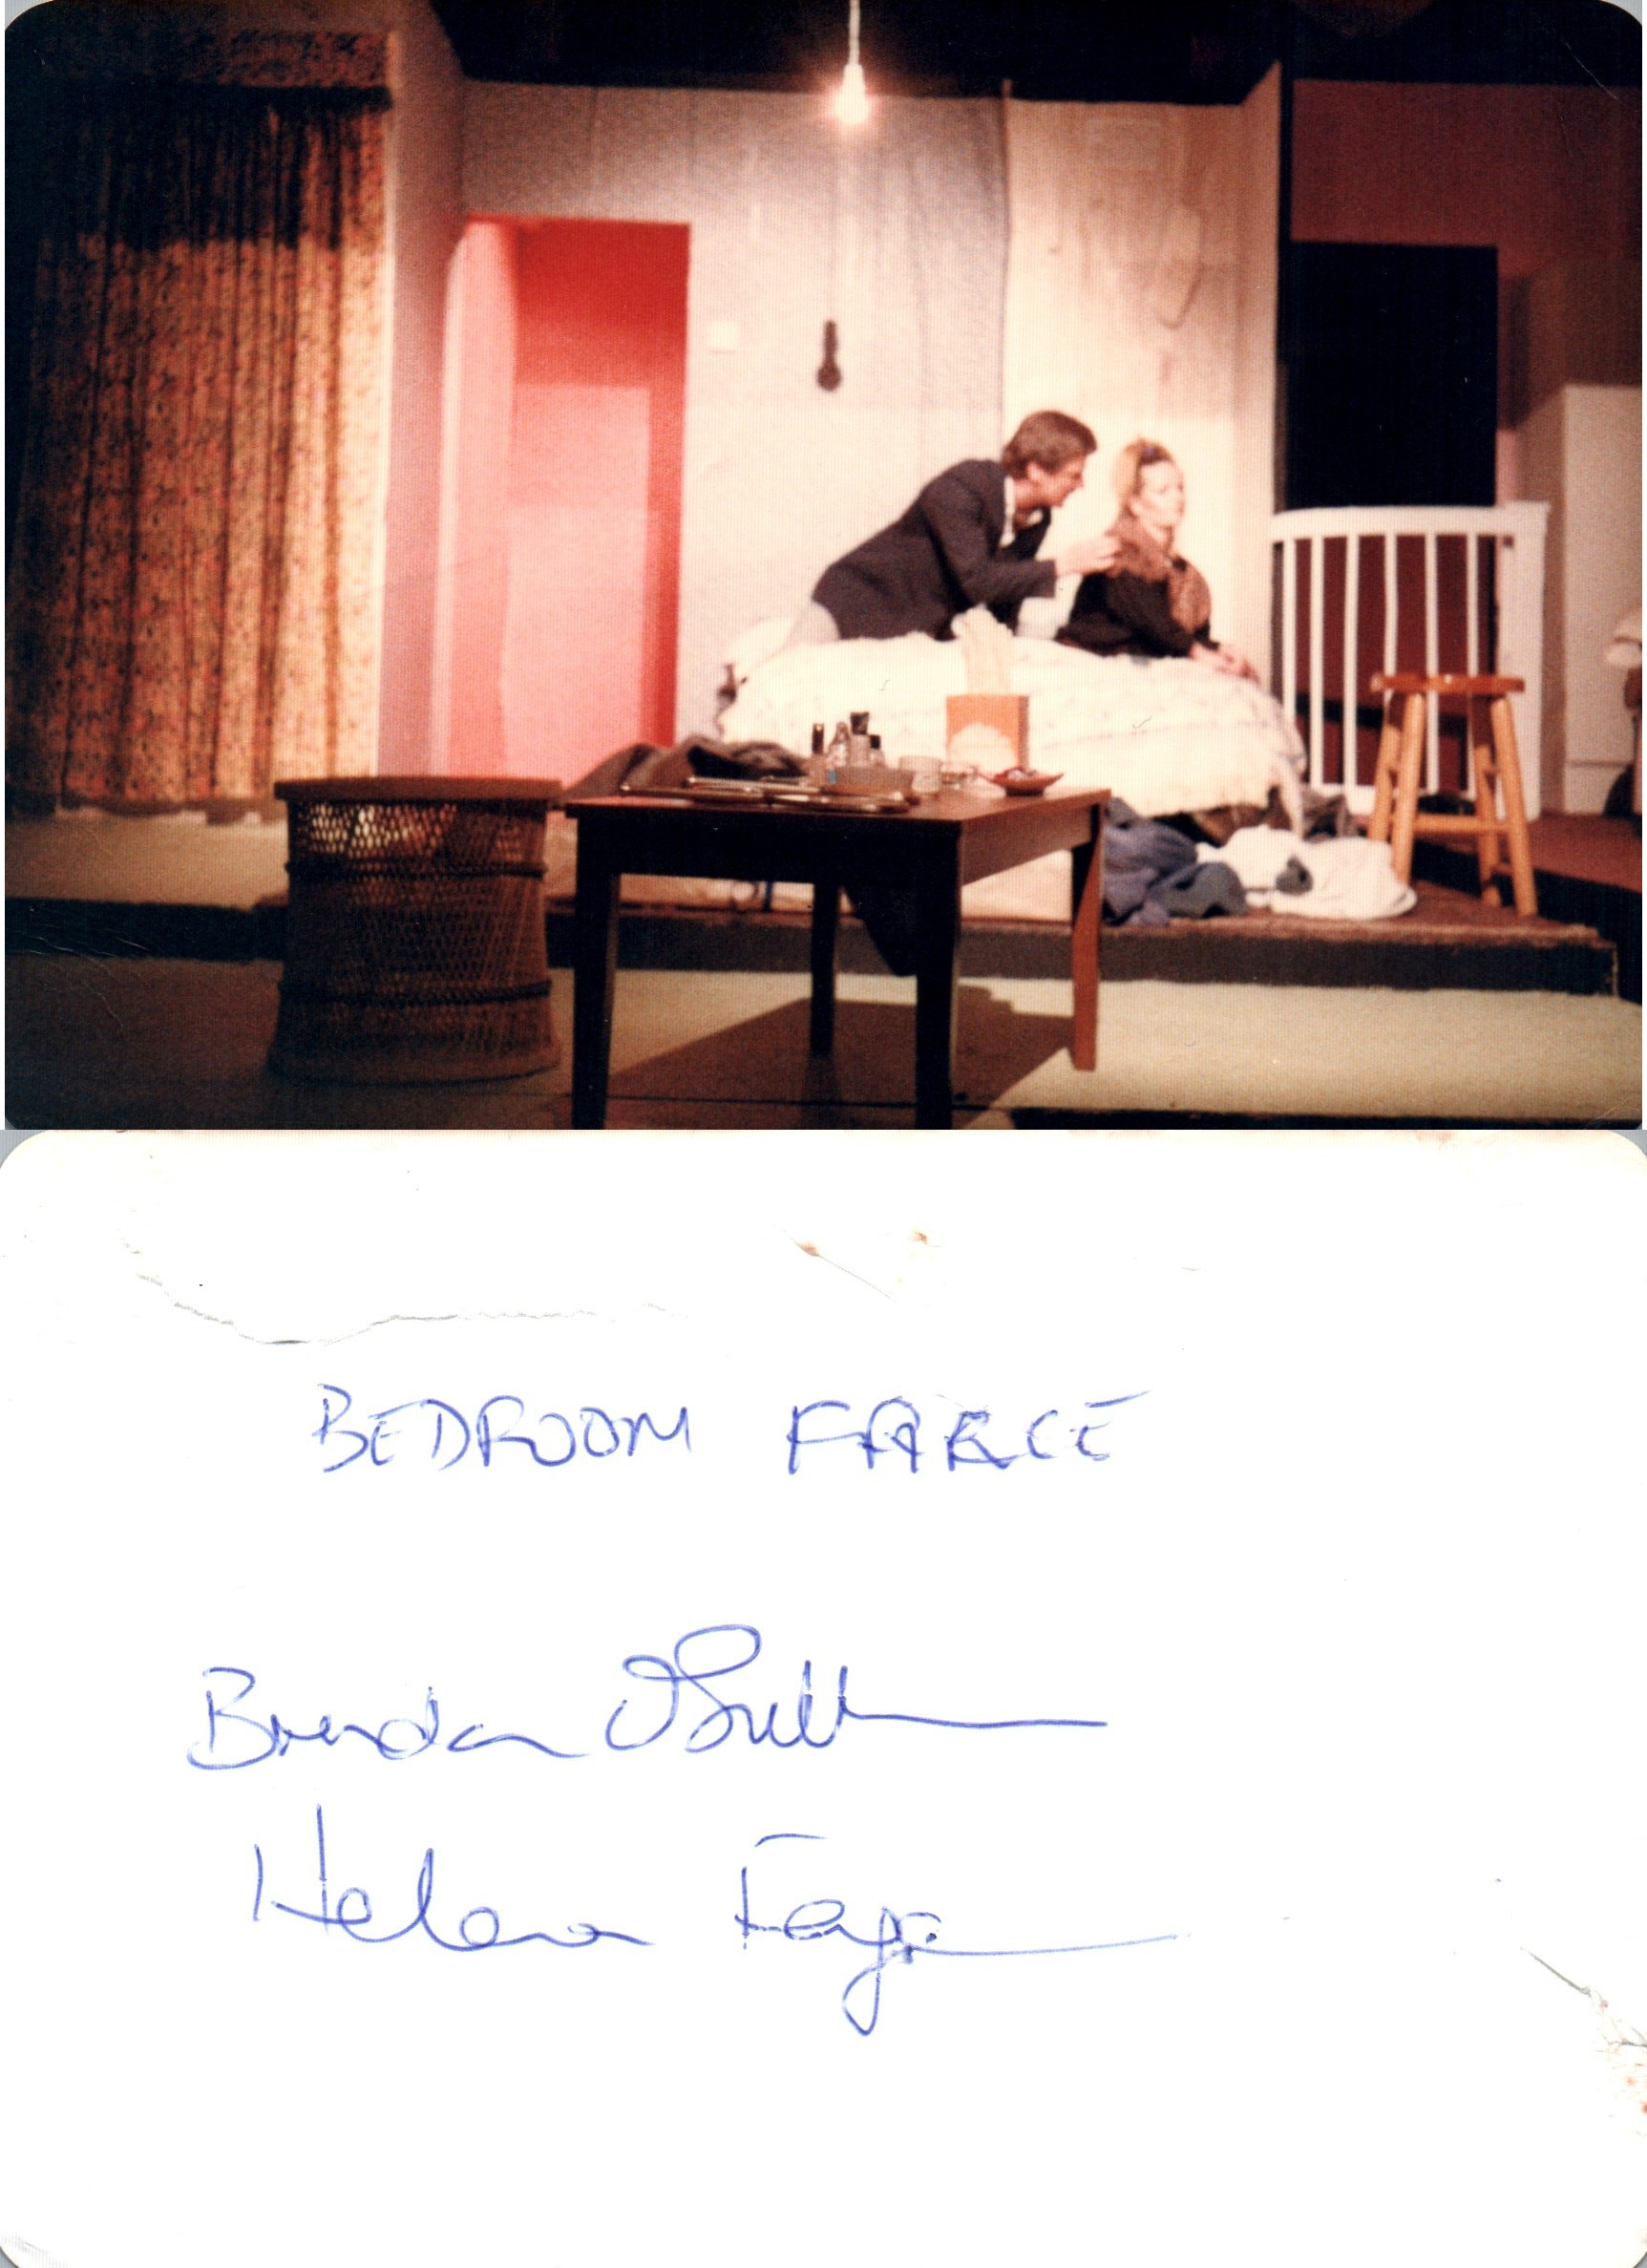 BEDROOM FARCE
Brendan O'Sullivan
Helena